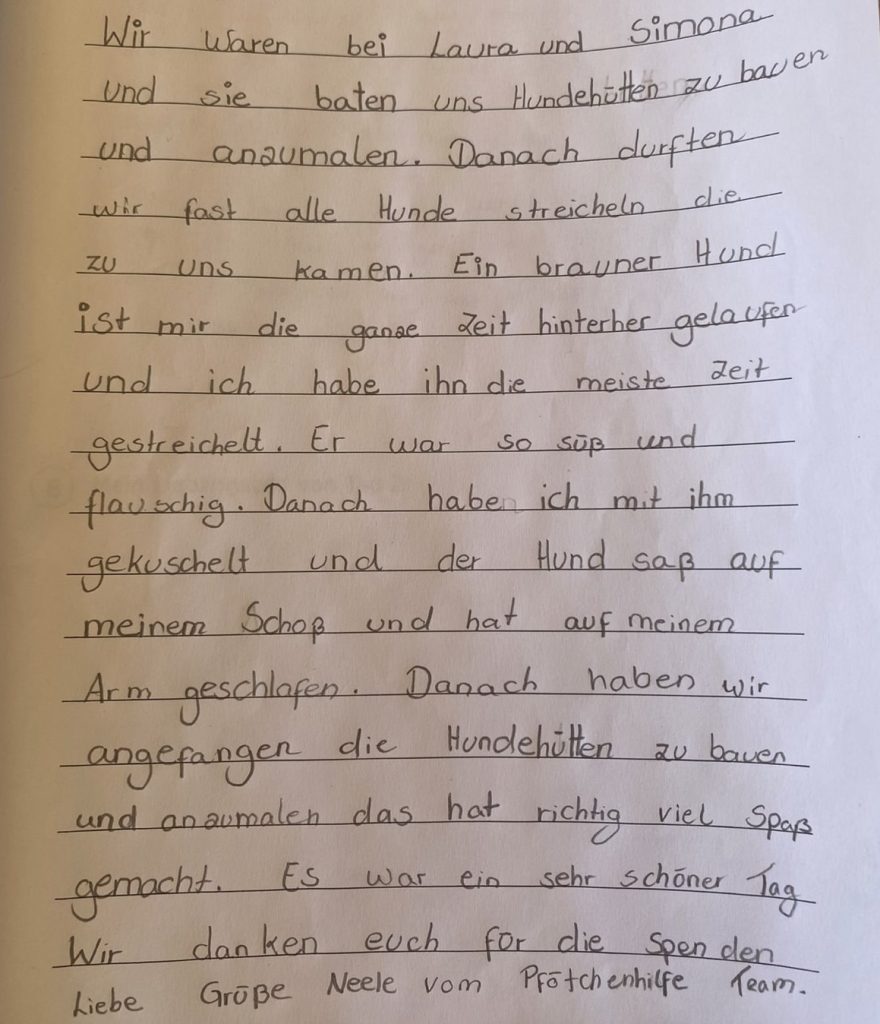 Wir waren bei Laura und Simona
und sie baten uns Hundehütten zu bauen
und anzumalen. Danach durften
wir fast alle Hunde streicheln die
zu uns kamen. Ein brauner Hund
ist mir die ganze Zeit hinterher gelaufen
und ich habe ihn die meiste Zeit
gestreichelt. Er war so süß und
flauschig. Danach haben ich mit ihm
gekuschelt und der Hund saß auf
meinem Schoß und hat auf meinem
Arm geschlafen. Danach haben wir
angefangen die Hundehütten zu bauen
und anzumalen das hat richtig viel Spaß
gemacht. Es war ein sehr schöner Tag
Wir danken euch für die Spenden
Liebe Grüße Neele vom Pfötchenhilfe Team.